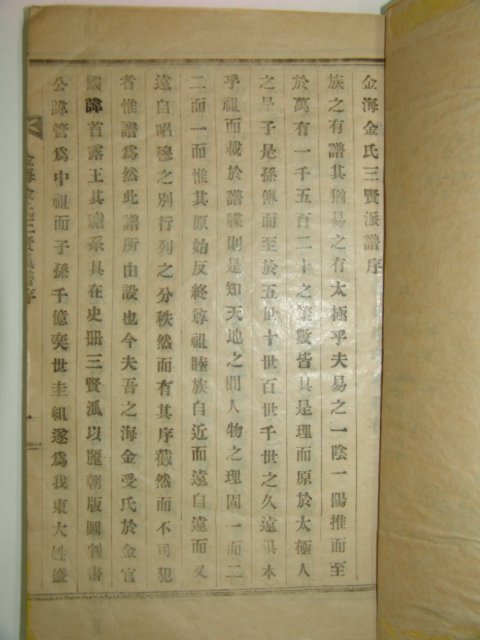 金海金氏三賢派譜序
族之有譜其猶易之有太極乎夫易之一陰一陽推而至
於萬有一千五百二十之策數皆具是理而原於太極人
之是子是孫傳而至於五世十世百世千世之久遠俱本
乎祖而載於譜牒則是知天地之間人物之理固一而二
二而一而惟其原始反終尊祖睦族自近而遠自遠而又
遠自昭穆之別行列之分秩然而有其序截然而不可犯
者惟譜爲然此譜所由設也今夫吾之海金受氏於金官
國諱首露王其璿系具在史冊三賢派以麗朝版圖判書
公諱管爲中祖而子孫千億奕世圭組遂爲我東大姓盛
金海金氏三賢派譜序
一